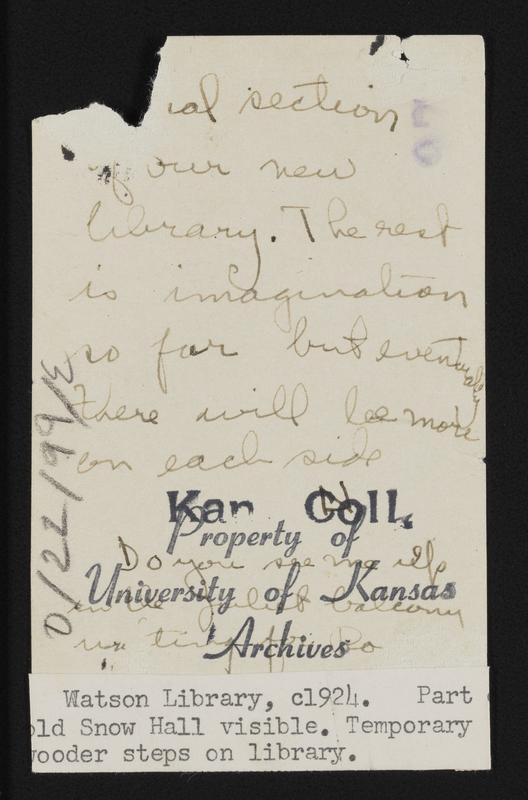 ial section
of our new
library. The rest
is imagination
so far but eventually
there will be more
on each side
Kan Coll.
Property of
Do you see me up
University of Kansas
balcony
Archives
0/22/99/E
Watson Library, c1924. Part
old Snow Hall visible. Temporary
wooder steps on library.